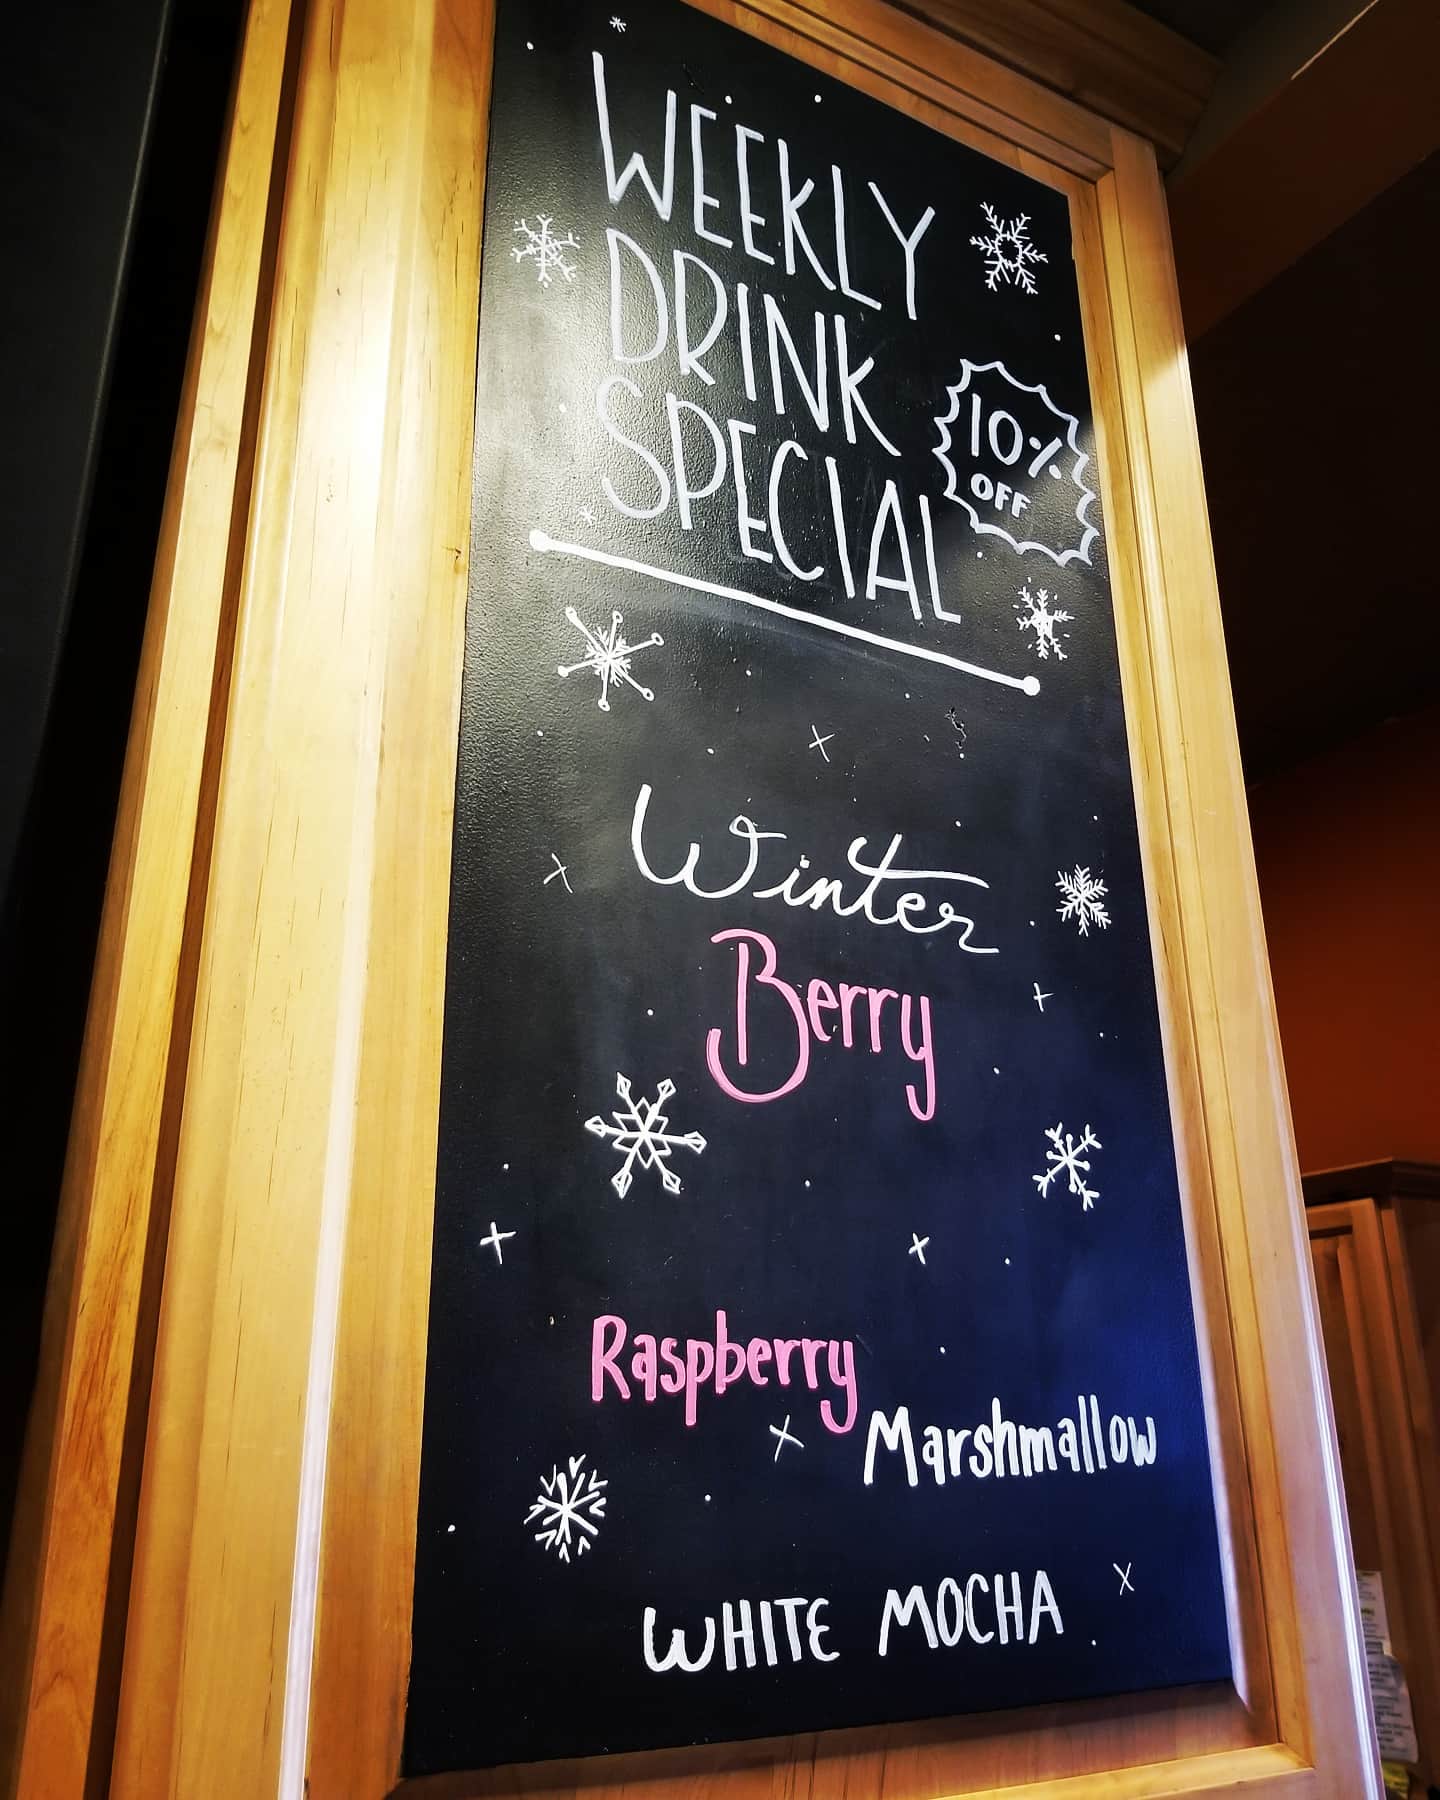 WEEKLY
DRINK
SPECIAL
10%
OFF
Winter
Berry
Raspberry
Marshmallow
WHITE MOCHA